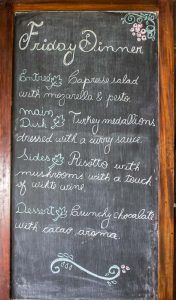 Friday Dinner
Entreé Caprese salad
with mozarella & pesto.
main
Dish Turkey medallions
dressed with a curry sauce.
Sides Risotto with
mushrooms with a touch
of white wine.
Dessert Crunchy chocolate
with cacao aroma.